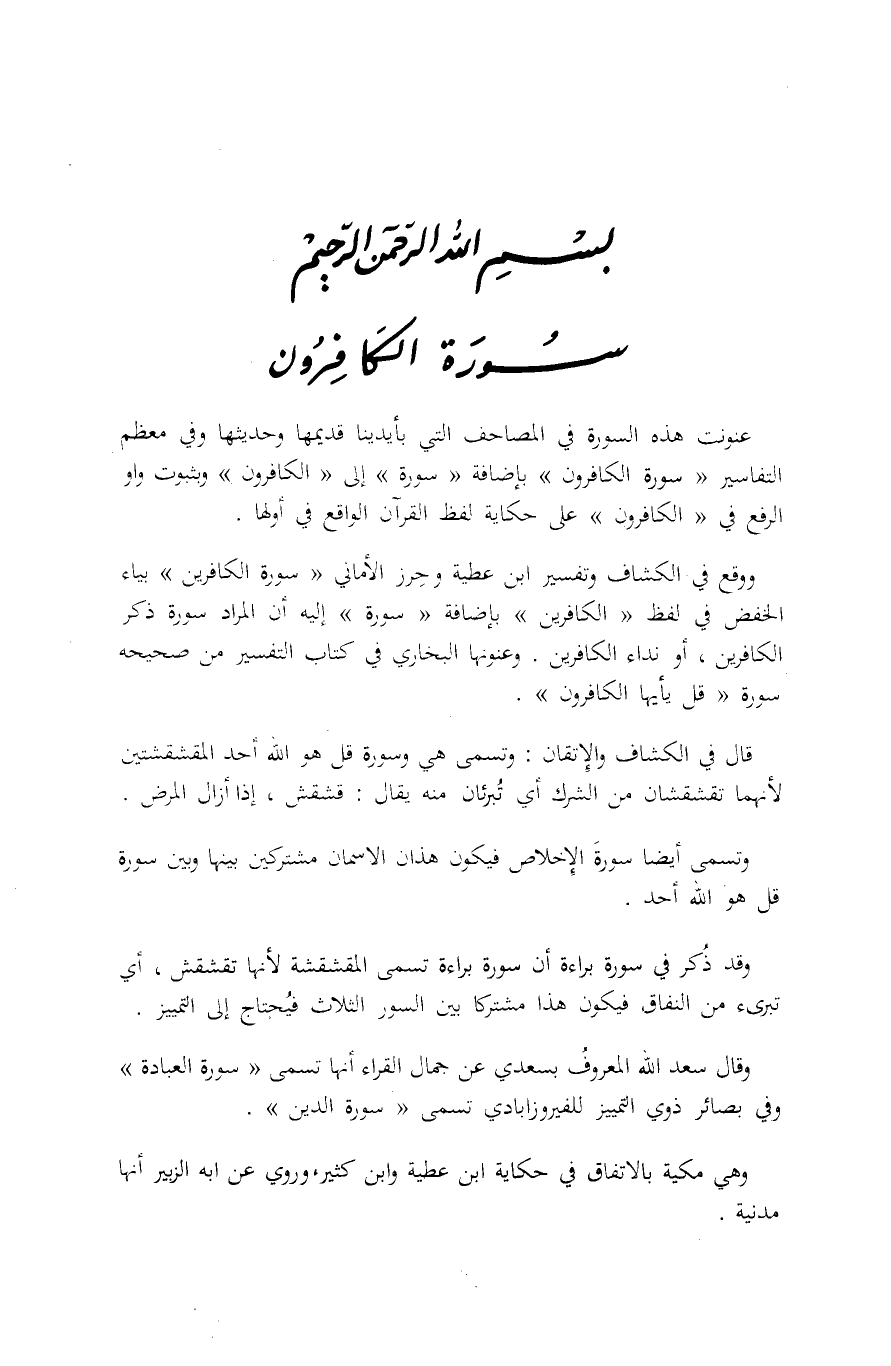 بسم الله الرحمن الرحيم
سورة الكافرون
عنونت هذه السورة في المصاحف التي بأيدينا قديمها وحديثها وفي معظم
التفاسير « سورة الكافرون » بإضافة « سورة » إلى « الكافرون » وبثبوت واو
الرفع في « الكافرون » على حكاية لفظ القرآن الواقع في أولها .
ووقع في الكشاف وتفسير ابن عطية وحِرز الأماني « سورة الكافرين » بياء
الخفض في لفظ « الكافرين » بإضافة « سورة » إليه أن المراد سورة ذكر
الكافرين ، أو نداء الكافرين . وعنونها البخاري في كتاب التفسير من صحيحه
سورة « قل يأيها الكافرون » .
قال في الكشاف والإِتقان : وتسمى هي وسورة قل هو الله أحد المقشقشتين
لأنهما تقشقشان من الشرك أي تُبرئان منه يقال : قشقش ، إذا أزال المرض .
وتسمى أيضا سورةَ الإِخلاص فيكون هذان الاسمان مشتركين بينها وبين سورة
قل هو الله أحد .
وقد ذُكر في سورة براءة أن سورة براءة تسمى المقشقشة لأنها تقشقش ، أي
تبرىء من النفاق فيكون هذا مشتركا بين السور الثلاث فيُحتاج إلى التمييز .
وقال سعد الله المعروفُ بسعدي عن جمال القراء أنها تسمى « سورة العبادة »
وفي بصائر ذوي التمييز للفيروزابادي تسمى « سورة الدين » .
وهي مكية بالاتفاق في حكاية ابن عطية وابن كثير، وروي عن ابه الزبير أنها
مدنية .